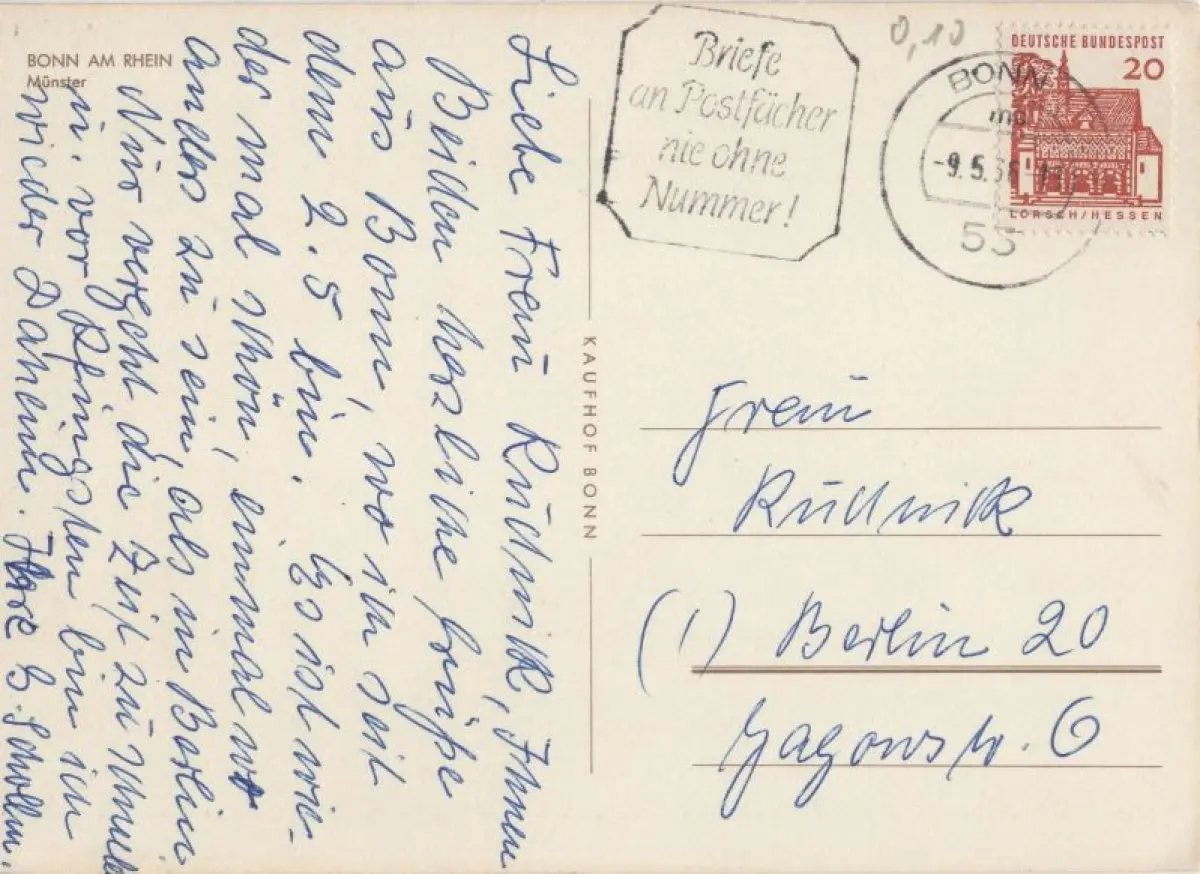 BONN AM RHEIN
Münster
Liebe Frau Rudnick, Ihnen
Beiden herzliche Grüße
aus Bonn, wo ich seit
dem 2.5 bin. Es ist wie-
der mal schön, einmal wo
anders zu sein, als in Berlin
Nur vergeht die Zeit zu schnell
u. vor Pfingsten bin ich
wieder Daheim. Ihre
KAUFHOF BONN
Briefe
an Postfächer
nie ohne
Nummer!
0,10
BONN
-9.5.66
53
DEUTSCHE BUNDESPOST
20
LORSCH/HESSEN
Frau
Rudnick
(1) Berlin 20
Jagowstr. 6